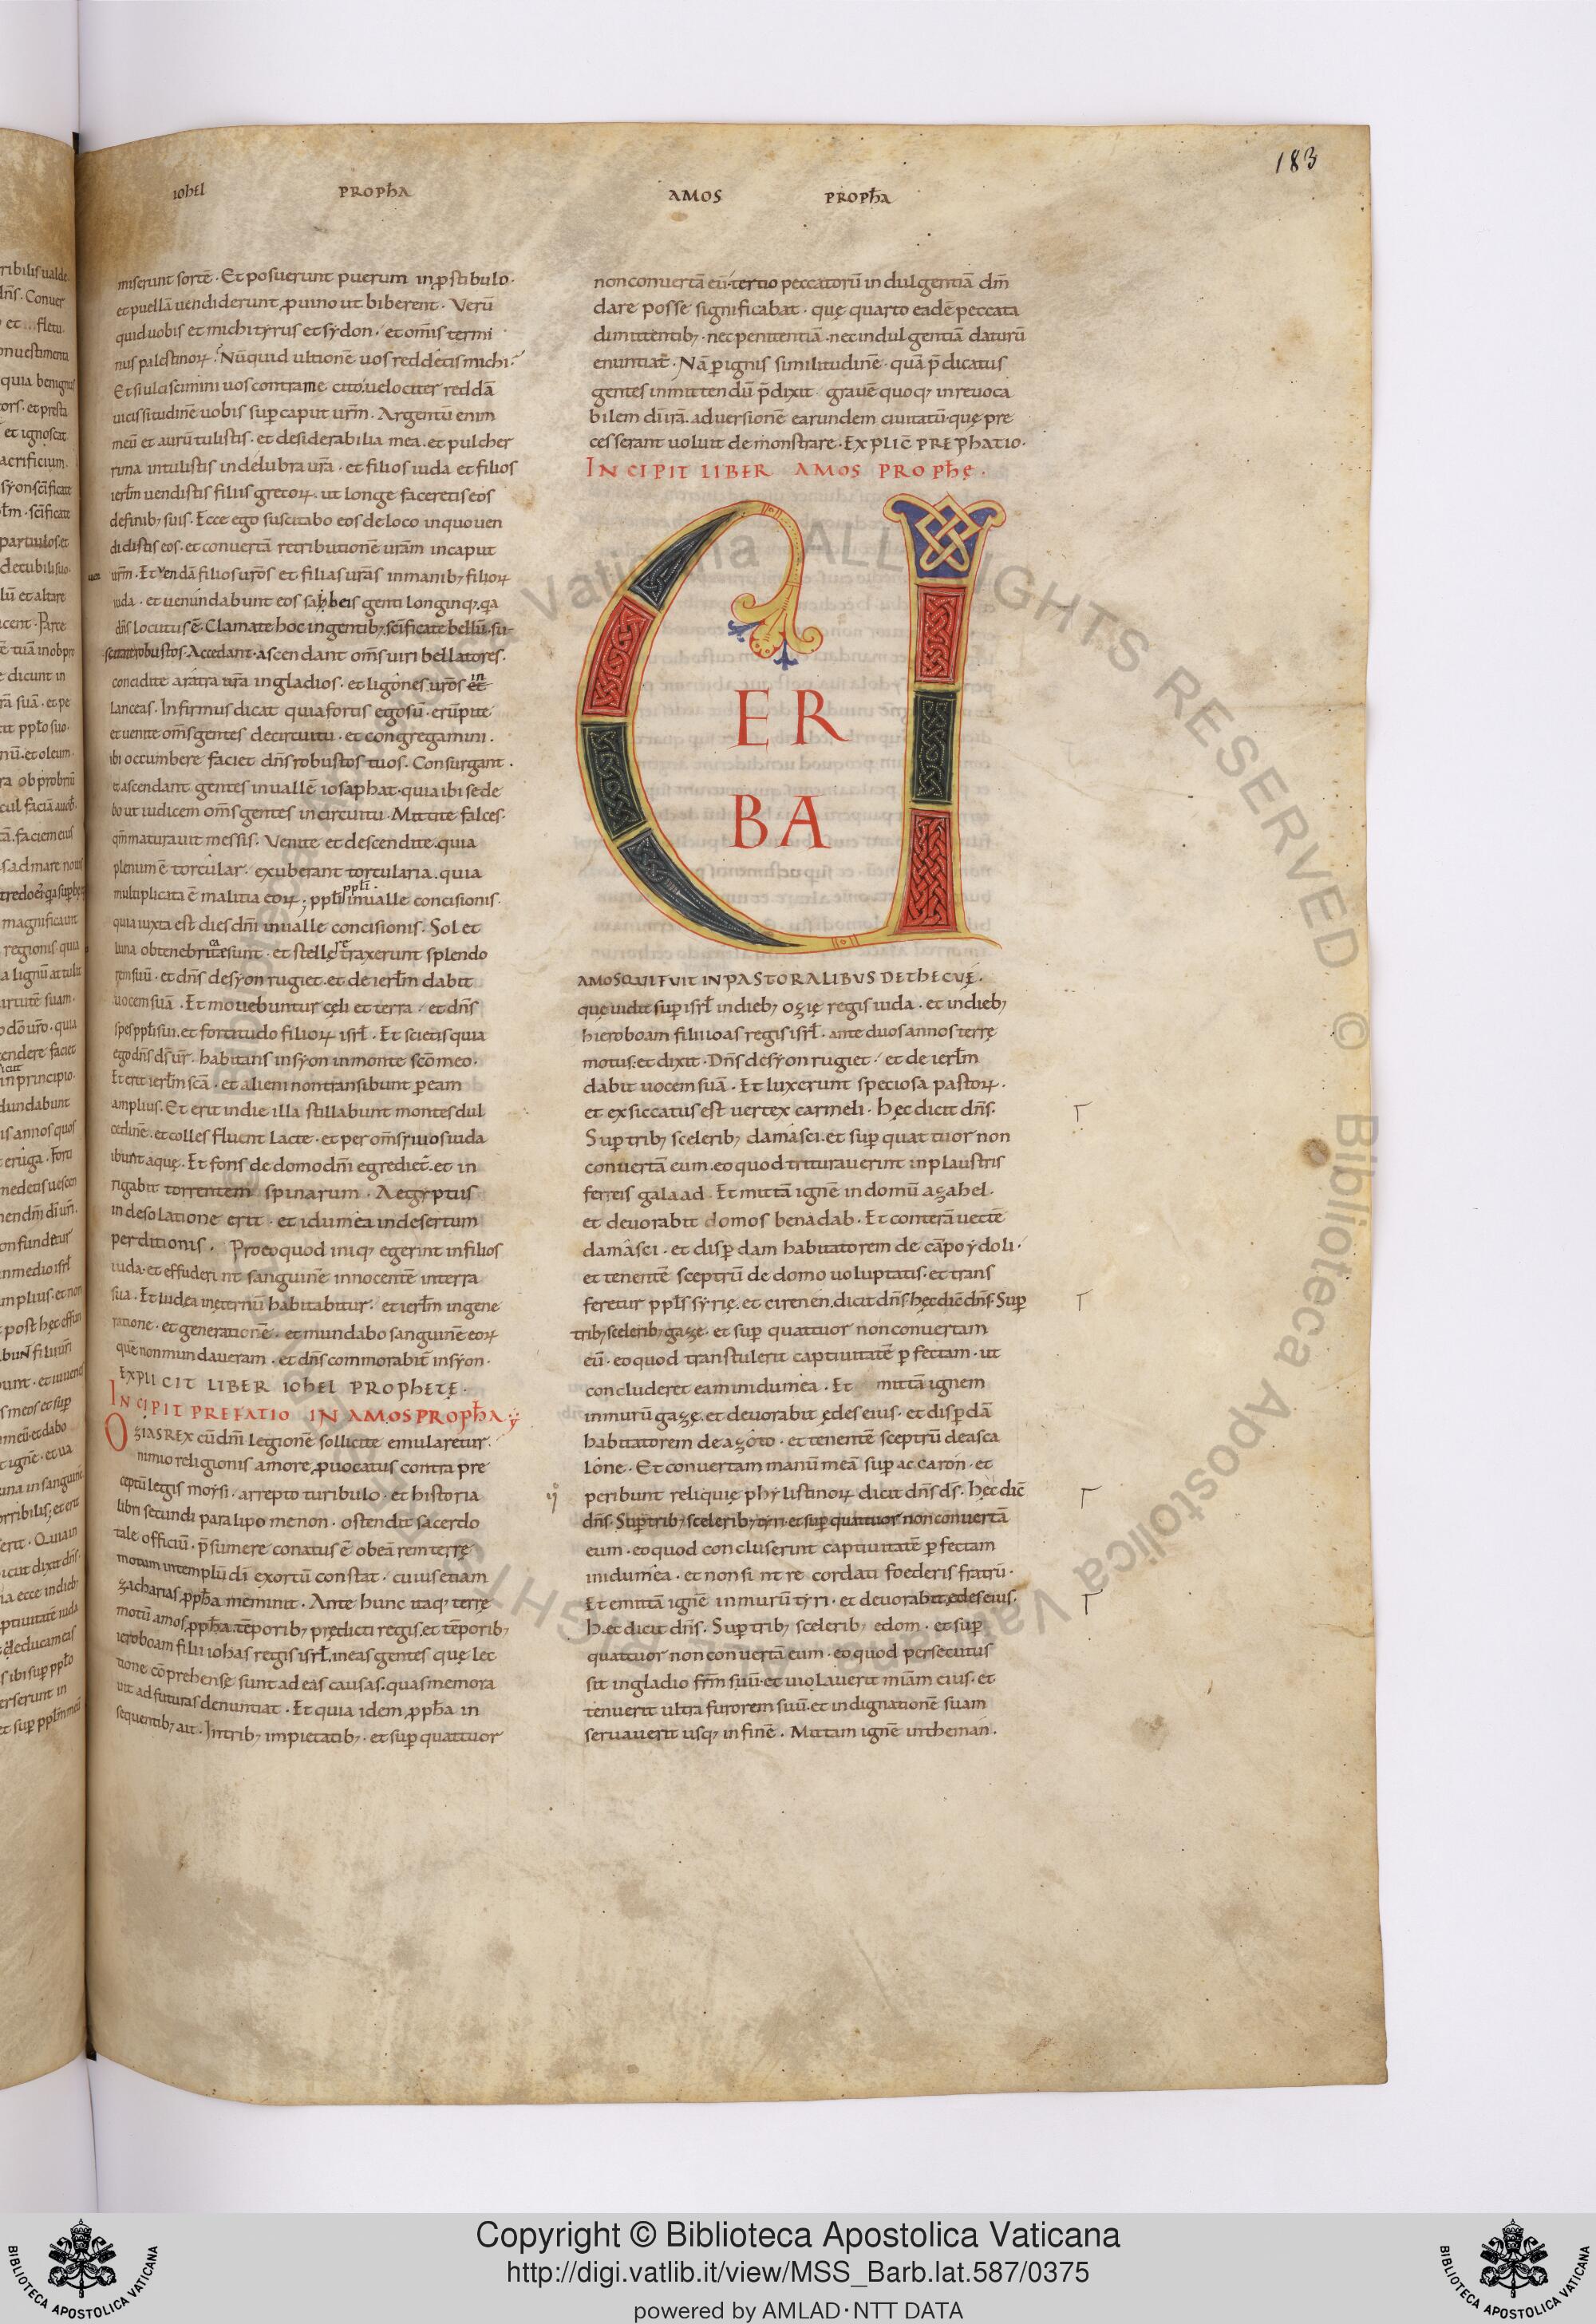 183
iohel PROPhA
AMOS PROPhA
miserunt sortē · Et posuerunt puerum in p̱stibulo ·
et puellā uendiderunt p̱ uino ut biberent · Verū
quid uobis et michi tyrus et sydon · et om̄is termi
nus palestinoꝝ · Nūquid ultionē uos reddetis michi ·
Et si ulciscimini uos contra me cito uelociter reddā
uicissitudinē uobis sup̱ caput urm̄ . Argentū enim
meū et aurū tulistis · et desiderabilia mea · et pulcher
rima intulistis in delubra ura̅ · et filios iuda et filios
ierlm̄ uendistis filiis grecoꝝ . ut longe faceretis eos
de finibꝫ suis · Ecce ego suscitabo eos de loco in quo uen
didistis eos · et conuertā retributionē uram̄ in caput
urm̄ · Et vendā filios uros̄ et filias uras̄ in manibꝫ filioꝝ
iuda · et uenundabunt eos sabeis genti longinqꝫ · qa
dn̄s locutus ē · Clamate hoc in gentibꝫ · scīficate bellū · su
scitate robustos · Accedant · ascendant om̄s uiri bellatores ·
concidite aratra ura̅ in gladios · et ligones uros̄ in
lanceas · Infirmus dicat quia fortis ego sū · erūpite
et uenite om̄s gentes de circuitu · et congregamini ·
ibi occumbere faciet dn̄s robustos tuos . Consurgant ·
et ascendant gentes in uallē iosaphat · quia ibi sede
bo ut iudicem om̄s gentes in circuitu · Mittite falces ·
qm̄ maturauit messis · Venite et descendite · quia
plenum ē torcular · exuberant torcularia · quia
multiplicita ē malitia eoꝝ ; ppl̄i ppl̄i in ualle concisionis ·
quia iuxta est dies dn̄i in ualle concisionis . Sol et
luna obtenebricati sunt · et stellę retraxerunt splendo
rem suū · et dn̄s de syon rugiet · et de ierlm̄ dabit
uocem suā · Et mouebuntur cęli et terra · et dn̄s
spes ppl̄i sui · et fortitudo filioꝝ isrl̄ · Et scietis quia
ego dn̄s ds̄ ur̄ · habitans in syon in monte scō meo ·
Et erit ierlm̄ scā · et alieni non transibunt p̱ eam
amplius · Et erit in die illa stillabunt montes dul
cedinē · et colles fluent lacte · et per om̄s riuos iuda
ibunt aquę · Et fons de domo dn̄i egrediet̄ · et in
rigabit torrentem spinarum · Aegyptus
in desolatione erit · et idumea in desertum
perditionis . Pro eo quod iniqꝫ egerint in filios
iuda · et effuderint sanguinē innocentē in terra
sua . Et iudea in ęternū habitabitur · et ierlm̄ in gene
ratione · et generationē · et mundabo sanguinē eoꝝ
quē non mundaueram · et dn̄s commorabit̄ in syon ·
EXPLICIT LIBER IOHEL PROPHETĘ ·
INCIPIT PREFATIO IN AMOS PROPhA
OZIAS REX cū dn̄i legionē sollicite emularetur ·
nimio religionis amore p̱uocatus contra pre
ceptū legis moysi · arrepto turibulo · et historia
libri secundi paralipomenon · ostendit sacerdo
tale officiū · p̄sumere conatus ē · ob eā rem terrę
motum in templū di̅ exortū constat · cuius etiam
zacharias p̱pha meminit · Ante hunc itaqꝫ terrę
motū amos p̱pha tēporibꝫ prędicti regis · et tēporibꝫ
ieroboam filii iohas regis isrl̄ · in eas gentes quę lec
tione cōprehense sunt ad eas causas · quas memora
uit ad futuras denuntiat · Et quia idem p̱pha in
sequentibꝫ ait · In tribꝫ impietatibꝫ · et sup̱ quattuor
non conuertā eū · tertio peccatorū indulgentiā dn̄i
dare posse significabat · quę quarto eadē peccata
dimittentibꝫ · nec penitentiā · nec indulgentiā daturū
enuntiat̄ · Nā p̱ ignis similitudinē · quā p̄dicatus
gentes inmittendū p̄dixit · grauē quoqꝫ inreuoca
bilem di̅ irā · aduersionē earundem ciuitatū · quę pre
cesserant uoluit demonstrare · EXPLIC̄ PREPHATIO ·
INCIPIT LIBER AMOS PROPhĘ ·
U
ER
BA
AMOS QUI FUIT IN PASTORALIBUS DE THECUĘ ·
quę uidit sup̱ isrl̄ in diebꝫ ozię regis iuda · et in diebꝫ
hieroboam filii ioas regis isrl̄ · ante duos annos terrę
motus · et dixit · Dn̄s de syon rugiet · et de ierlm̄
dabit uocem suā · Et luxerunt speciosa pastoꝝ ·
et exsiccatus est uertex carmeli · hęc dicit dn̄s ·
Sup̱ tribꝫ sceleribꝫ damasci · et sup̱ quattuor non
conuertā eum · eo quod triturauerint in plaustris
ferreis galaad · Et mittā ignē in domū azahel ·
et deuorabit domos benadab · Et conterā uectē
damasci · et disp̱dam habitatorem de cāpo ydoli ·
et tenentē sceptrū de domo uoluptatis · et trans
feretur ppl̄s syrię · et cirenen · dicit dn̄s · hęc dic̄ dn̄s · Sup̱
tribꝫ sceleribꝫ gazę · et sup̱ quattuor non conuertam
eū · eo quod transtulerit captiuitatē p̱fectam · ut
concluderet eam in idumea · Et mittā ignem
in murū gazę · et deuorabit ędes eius · et disp̱dā
habitatorem de azoto · et tenentē sceptrū de asca
lone · Et conuertam manū meā sup̱ accaron · et
peribunt reliquię phylistinoꝝ dicit dn̄s ds̄ · hęc dic̄
dn̄s · Sup̱ tribꝫ sceleribꝫ tyri · et sup̱ quattuor non conuertā
eum · eo quod concluserint captiuitatē p̱fectam
in idumea · et non sint recordati foederis fratrū ·
Et emittā ignē in murū tyri · et deuorabit ędes eius ·
hęc dicit dn̄s · Sup̱ tribꝫ sceleribꝫ edom · et sup̱
quattuor non conuertā eum · eo quod persecutus
sit in gladio frm̄ suū · et uiolauerit mi̅am eius · et
tenuerit ultra furorem suū · et indignationē suam
seruauerit usqꝫ in finē . Mittam ignē in theman ·
Copyright © Biblioteca Apostolica Vaticana
http://digi.vatlib.it/view/MSS_Barb.lat.587/0375
powered by AMLAD·NTT DATA
BIBLIOTECA APOSTOLICA VATICANA
BIBLIOTECA APOSTOLICA VATICANA